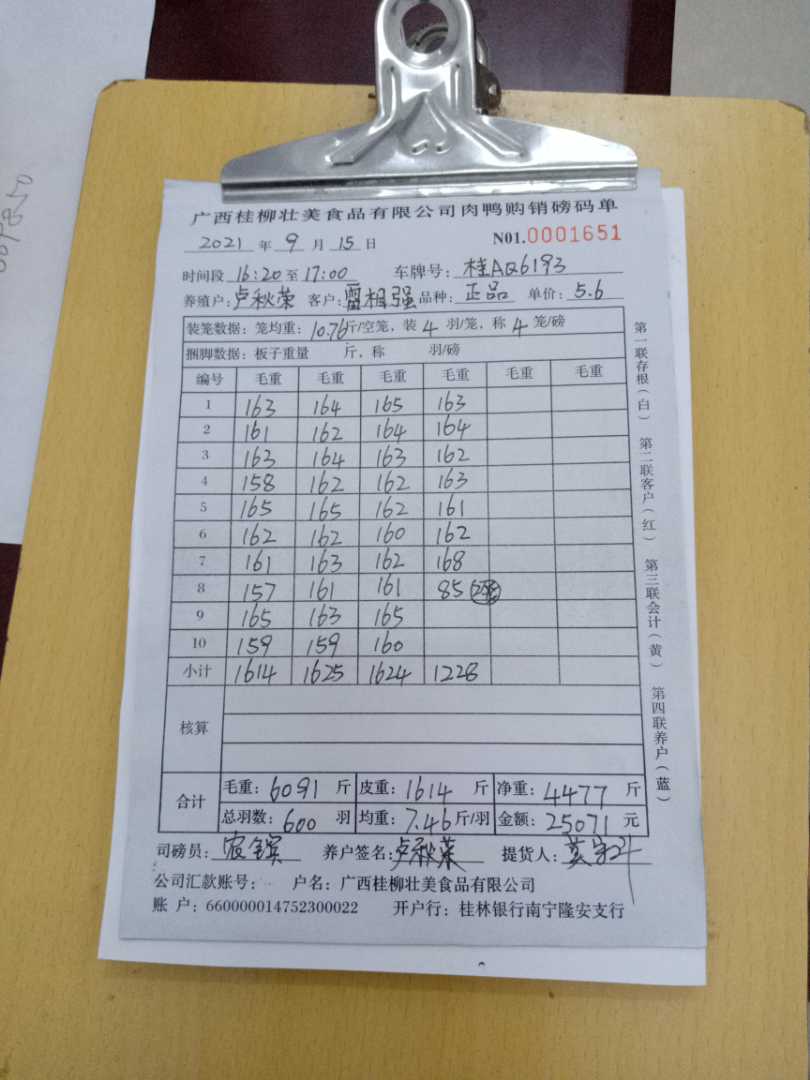 广西桂柳壮美食品有限公司肉鸭购销磅码单
2021 年 9 月 15 日 N01.0001651
时间段 16:20 至 17:00 车牌号: 桂AQ6193
养殖户: 卢秋荣 客户: 雷相强 品种: 正品 单价: 5.6
装笼数据: 笼均重: 10.76 斤/空笼, 装 4 羽/笼, 称 4 笼/磅
捆脚数据: 板子重量 斤, 称 羽/磅
编号 毛重 毛重 毛重 毛重 毛重 毛重
1 163 164 165 163
2 161 162 164 164
3 163 164 163 162
4 158 162 162 163
5 165 165 162 161
6 162 162 160 162
7 161 163 162 168
8 157 161 161 85
9 165 163 165
10 159 159 160
小计 1614 1625 1624 1228
核算
合计 毛重: 6091 斤 皮重: 1614 斤 净重: 4477 斤
总羽数: 600 羽 均重: 7.46 斤/羽 金额: 25071 元
司磅员: 养户签名: 卢秋荣 提货人:
公司汇款账号: 户名: 广西桂柳壮美食品有限公司
账户: 660000014752300022 开户行: 桂林银行南宁隆安支行
第一联存根(白) 第二联客户(红) 第三联会计(黄) 第四联养户(蓝)